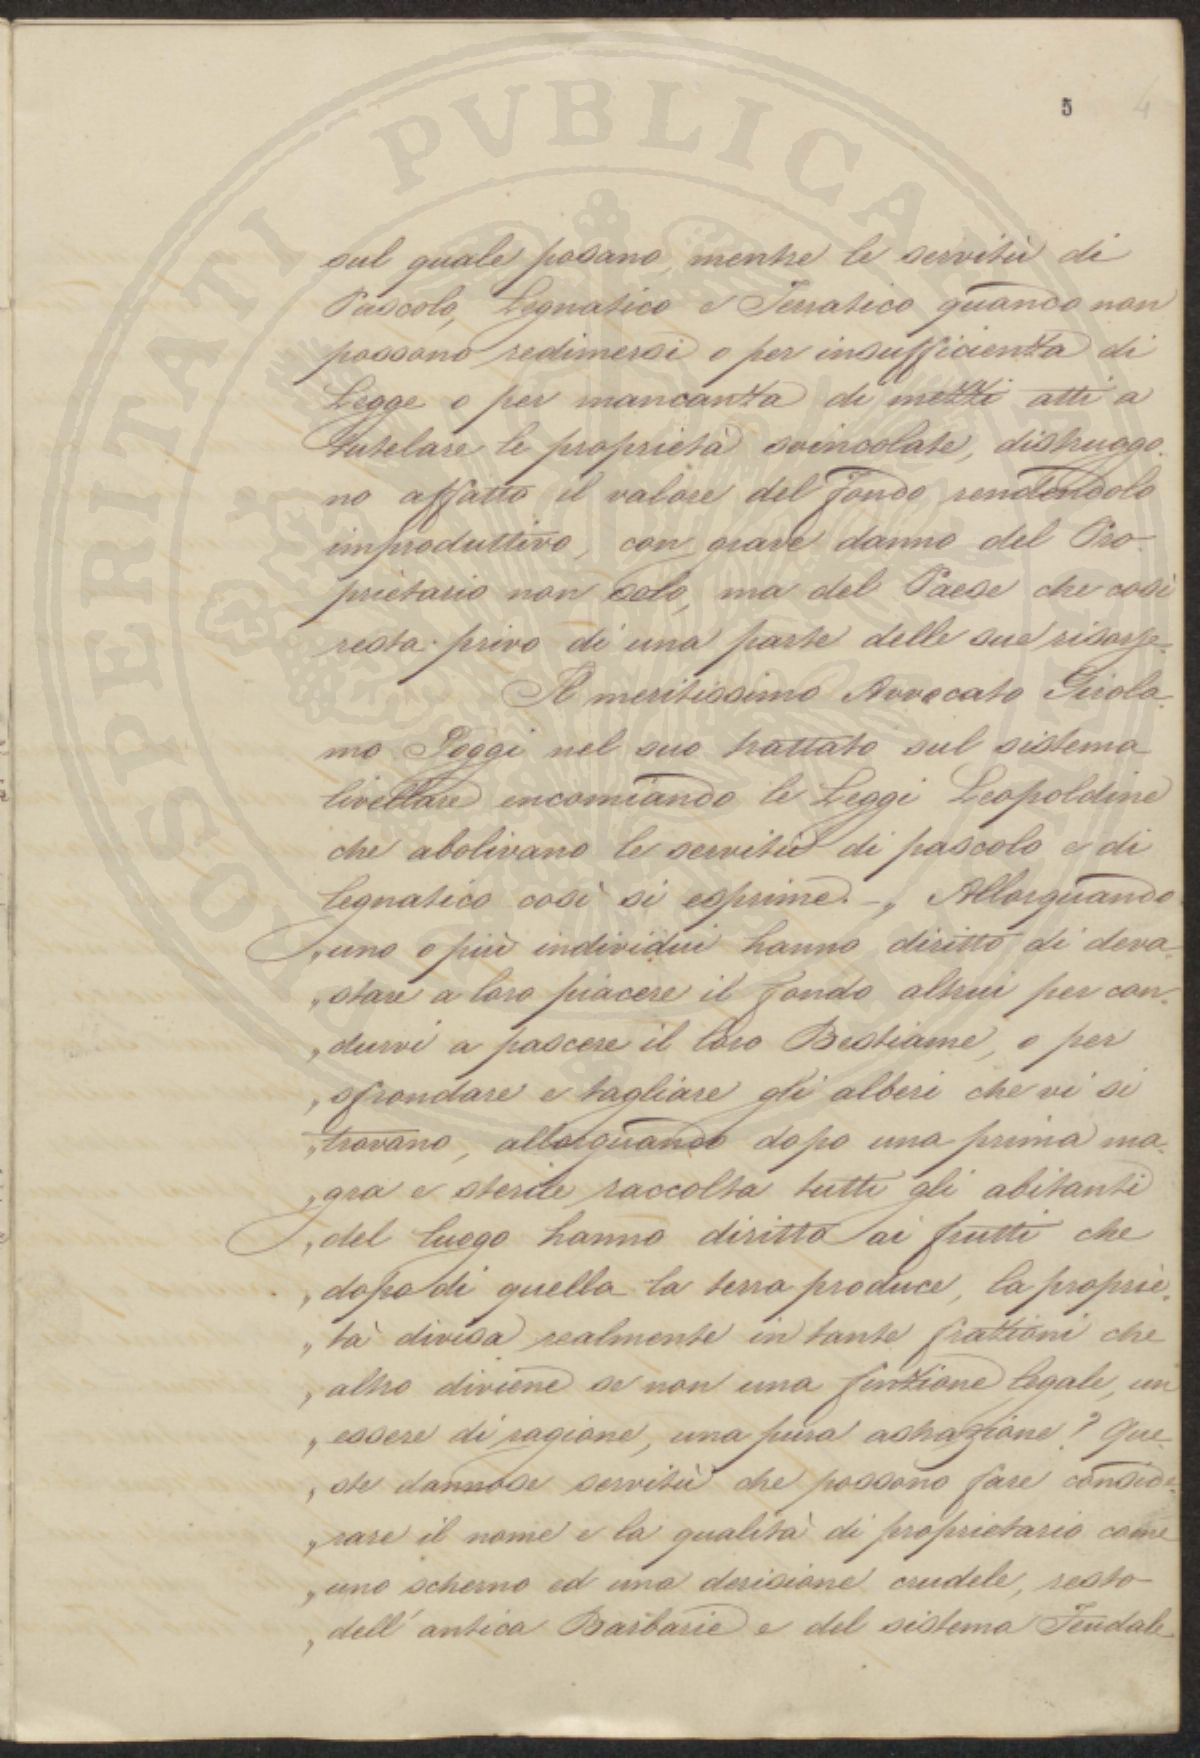 5 4
sul quale posano, mentre le servitù di
Pascolo, Legnatico e Terratico quando non
possono redimersi o per insufficienza di
Legge o per mancanza di mezzi atti a
tutelare le proprietà svincolate, distruggo-
no affatto il valore del fondo rendendolo
improduttivo, con grave danno del Pro-
prietario non solo, ma del Paese che così
resta privo di una parte delle sue risorse.
Il meritissimo Avvocato Girola-
mo Poggi nel suo trattato sul sistema
livellare encomiando le Leggi Leopoldine
che abolivano le servitù di pascolo e di
legnatico così si esprime. – „ Allorquando
„ uno o più individui hanno diritto di deva-
„ stare a loro piacere il fondo altrui per con-
„ durvi a pascere il loro Bestiame, o per
„ sfrondare e tagliare gli alberi che vi si
„ trovano, allorquando dopo una prima ma-
„ gra e sterile raccolta tutti gli abitanti
„ del luogo hanno diritto ai frutti che
„ dopo di quella la terra produce, la proprie-
„ tà divisa realmente in tante frazioni che
„ altro diviene se non una finzione legale, un
„ essere di ragione, una pura astrazione? Que-
„ ste dannose servitù che possono fare conside-
„ rare il nome e la qualità di proprietario come
„ uno scherno ed una derisione crudele, resto
„ dell'antica Barbarie e del sistema Feudale
PROSPERITATI PUBLICAE